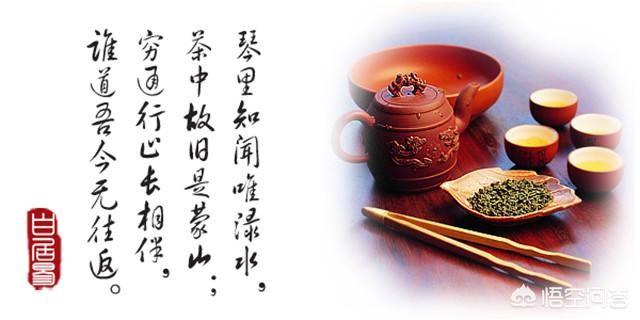 琴里知闻唯渌水，
茶中故旧是蒙山；
穷通行止长相伴，
谁道吾今无往返。
白居易
悟空问答